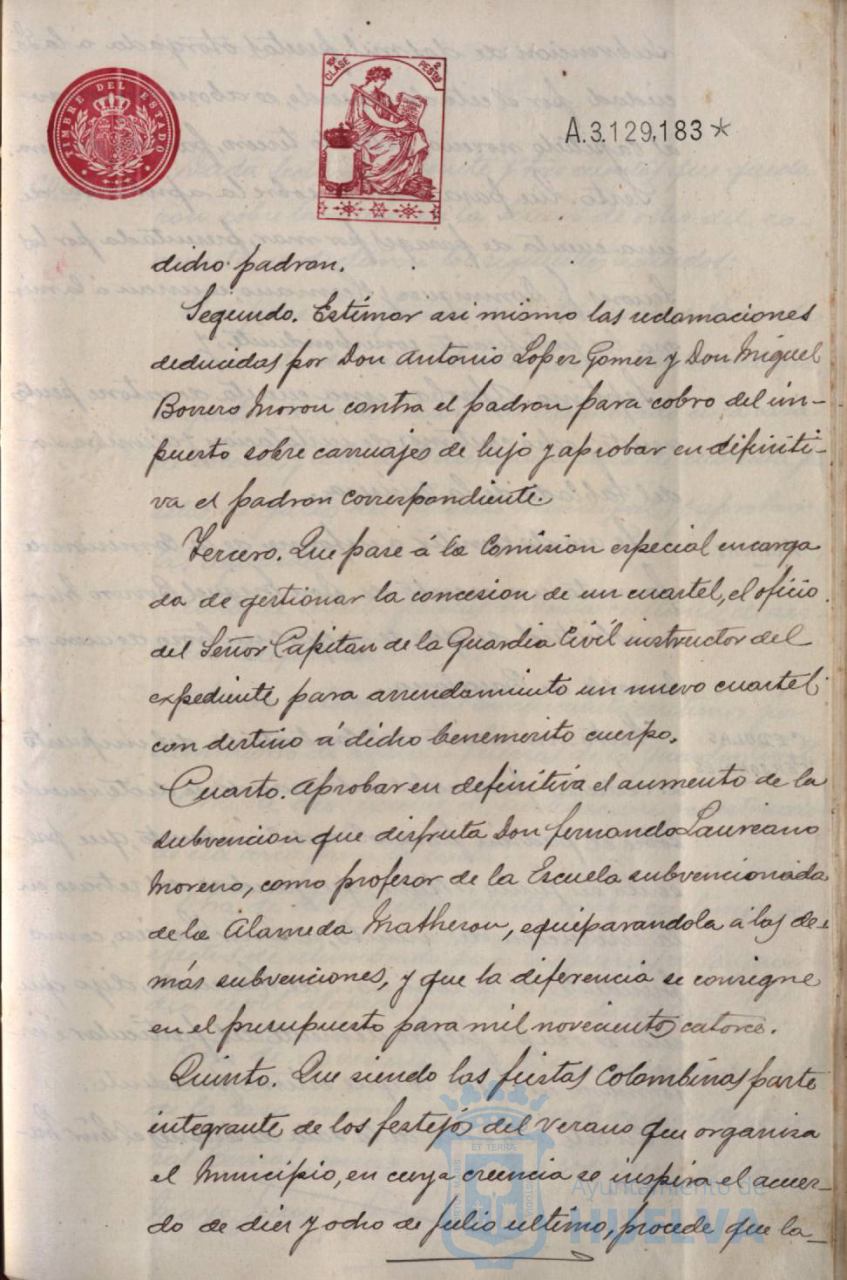 TIMBRE DEL ESTADO
10ª CLASE 2 PESTAS
A.3.129,183*
dicho padron.
Segundo. Estimar asi mismo las reclamaciones
deducidas por Don Antonio Lopez Gomez y Don Miguel
Borrero Moron contra el padron para cobro del im-
puesto sobre carruajes de lujo y aprobar en definiti-
va el padron correspondiente.
Tercero. Que pase á la Comision especial encarga
da de gestionar la concesion de un cuartel, el oficio
del Señor Capitan de la Guardia Civil instructor del
expediente para arrendamiento un nuevo cuartel
con destino á dicho benemerito cuerpo.
Cuarto. Aprobar en definitiva el aumento de la
subvencion que disfruta Don Fernando Laureano
Moreno, como profesor de la Escuela subvencionada
de la Alameda Matheson, equiparandola á las de-
más subvenciones, y que la diferencia se consigne
en el presupuesto para mil novecientos catorce.
Quinto. Que siendo las fiestas Colombinas parte
integrante de los festejos del verano que organiza
el Municipio, en cuya creencia se inspira el acuer-
do de diez y ocho de Julio ultimo, procede que la
Ayuntamiento de
HUELVA